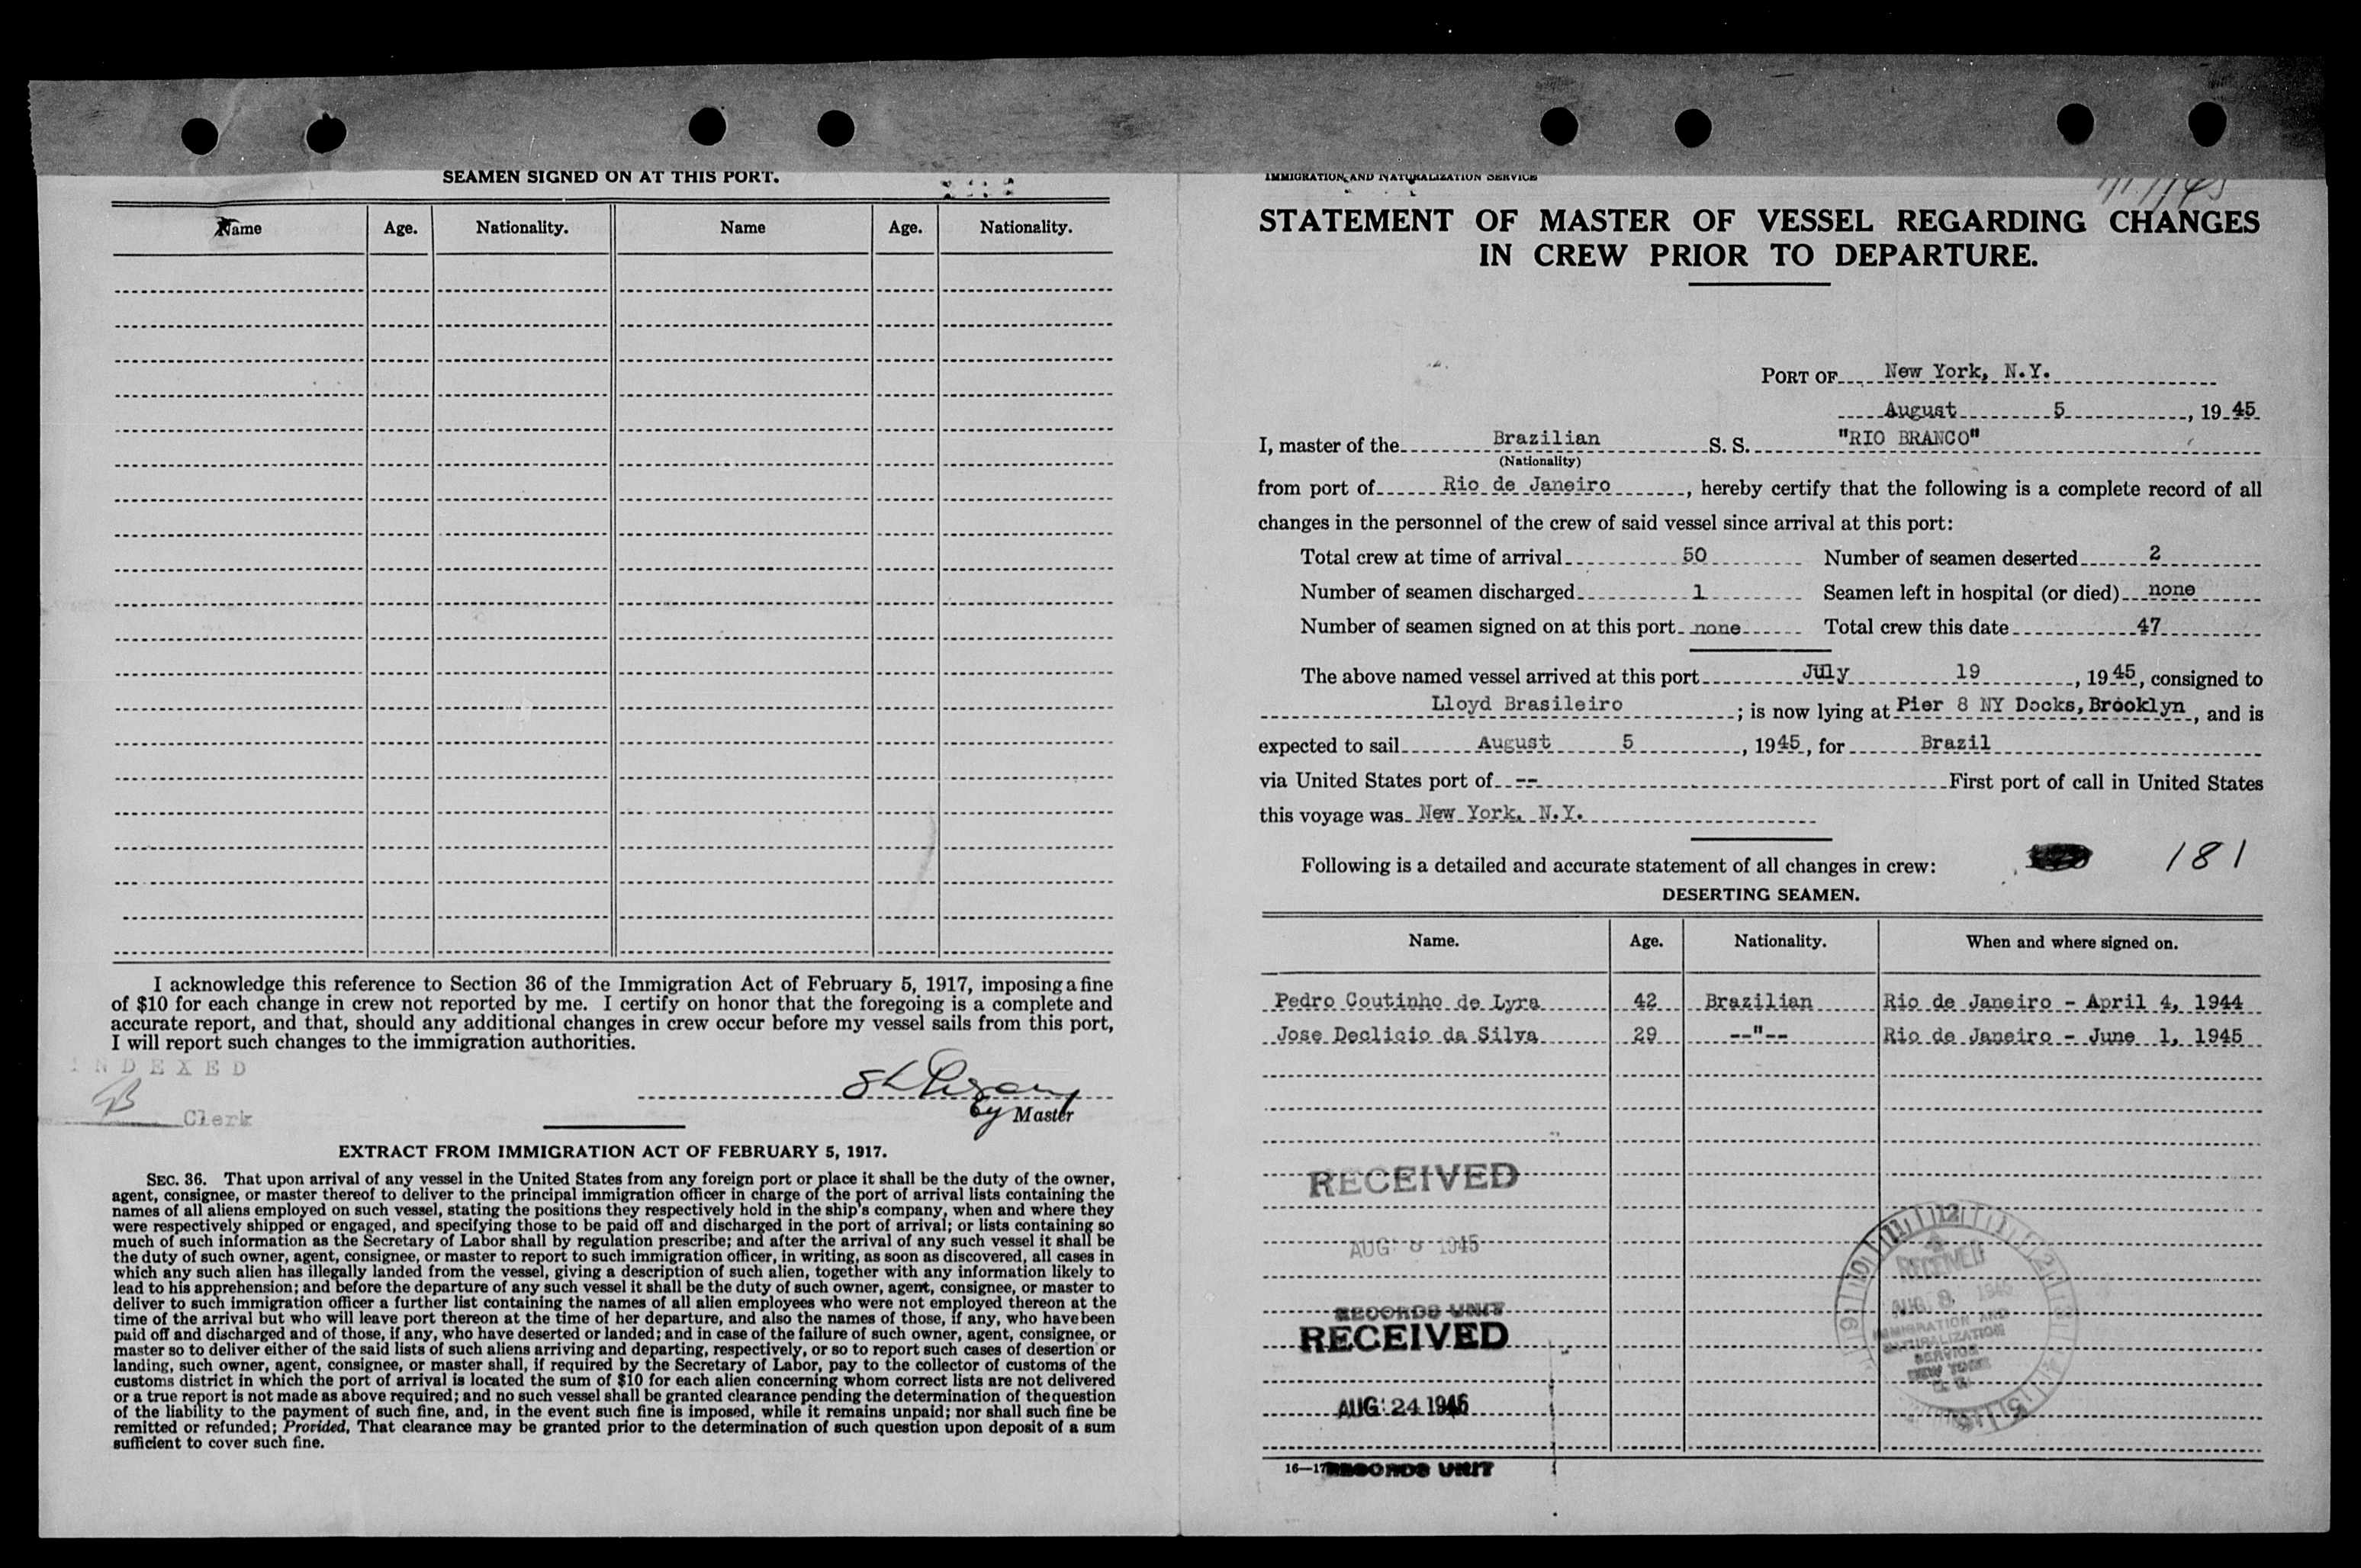 SEAMEN SIGNED ON AT THIS PORT.
Name Age. Nationality. Name Age. Nationality.
I acknowledge this reference to Section 36 of the Immigration Act of February 5, 1917, imposing a fine
of $10 for each change in crew not reported by me. I certify on honor that the foregoing is a complete and
accurate report, and that, should any additional changes in crew occur before my vessel sails from this port,
I will report such changes to the immigration authorities.
INDEXED
Clerk
by Master
EXTRACT FROM IMMIGRATION ACT OF FEBRUARY 5, 1917.
SEC. 36. That upon arrival of any vessel in the United States from any foreign port or place it shall be the duty of the owner,
agent, consignee, or master thereof to deliver to the principal immigration officer in charge of the port of arrival lists containing the
names of all aliens employed on such vessel, stating the positions they respectively hold in the ship's company, when and where they
were respectively shipped or engaged, and specifying those to be paid off and discharged in the port of arrival; or lists containing so
much of such information as the Secretary of Labor shall by regulation prescribe; and after the arrival of any such vessel it shall be
the duty of such owner, agent, consignee, or master to report to such immigration officer, in writing, as soon as discovered, all cases in
which any such alien has illegally landed from the vessel, giving a description of such alien, together with any information likely to
lead to his apprehension; and before the departure of any such vessel it shall be the duty of such owner, agent, consignee, or master to
deliver to such immigration officer a further list containing the names of all alien employees who were not employed thereon at the
time of the arrival but who will leave port thereon at the time of her departure, and also the names of those, if any, who have been
paid off and discharged and of those, if any, who have deserted or landed; and in case of the failure of such owner, agent, consignee, or
master so to deliver either of the said lists of such aliens arriving and departing, respectively, or so to report such cases of desertion or
landing, such owner, agent, consignee, or master shall, if required by the Secretary of Labor, pay to the collector of customs of the
customs district in which the port of arrival is located the sum of $10 for each alien concerning whom correct lists are not delivered
or a true report is not made as above required; and no such vessel shall be granted clearance pending the determination of the question
of the liability to the payment of such fine, and, in the event such fine is imposed, while it remains unpaid; nor shall such fine be
remitted or refunded; Provided, That clearance may be granted prior to the determination of such question upon deposit of a sum
sufficient to cover such fine.
IMMIGRATION AND NATURALIZATION SERVICE
STATEMENT OF MASTER OF VESSEL REGARDING CHANGES
IN CREW PRIOR TO DEPARTURE.
PORT OF New York, N.Y.
August 5, 19 45
I, master of the Brazilian S. S. "RIO BRANCO"
(Nationality)
from port of Rio de Janeiro, hereby certify that the following is a complete record of all
changes in the personnel of the crew of said vessel since arrival at this port:
Total crew at time of arrival 50 Number of seamen deserted 2
Number of seamen discharged 1 Seamen left in hospital (or died) none
Number of seamen signed on at this port none Total crew this date 47
The above named vessel arrived at this port July 19, 19 45, consigned to
Lloyd Brasileiro; is now lying at Pier 8 NY Docks, Brooklyn, and is
expected to sail August 5, 19 45, for Brazil
via United States port of -- First port of call in United States
this voyage was New York, N.Y.
Following is a detailed and accurate statement of all changes in crew: 181
DESERTING SEAMEN.
Name. Age. Nationality. When and where signed on.
Pedro Coutinho de Lyra 42 Brazilian Rio de Janeiro - April 4, 1944
Jose Declicio da Silva 29 --"-- Rio de Janeiro - June 1, 1945
RECEIVED
AUG 8 1945
RECORDS UNIT
RECEIVED
AUG 24 1945
RECORDS UNIT
16—17
RECEIVED
AUG 8, 1945
IMMIGRATION AND
NATURALIZATION
SERVICE
NEW YORK